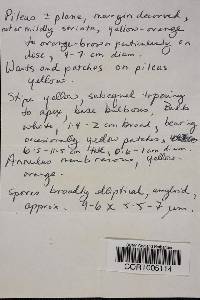 Pileus ± plane, margin decurved,
not or mildly striate, yellow-orange
to orange-brown particularly on
disc, 4-7 cm diam.
Warts and patches on pileus
yellow.
Stipe yellow, subequal - tapering
to apex, base bulbous, bulb
white, 1.4-2 cm broad, bearing
occasionally yellow patches,
6.5-11.5 cm tall, 0.6-1 cm diam.
Annulus membranous, yellow-
orange.
Spores broadly elliptical, amyloid,
approx. 9-6 x 5.5-7 µm.
COR1006114